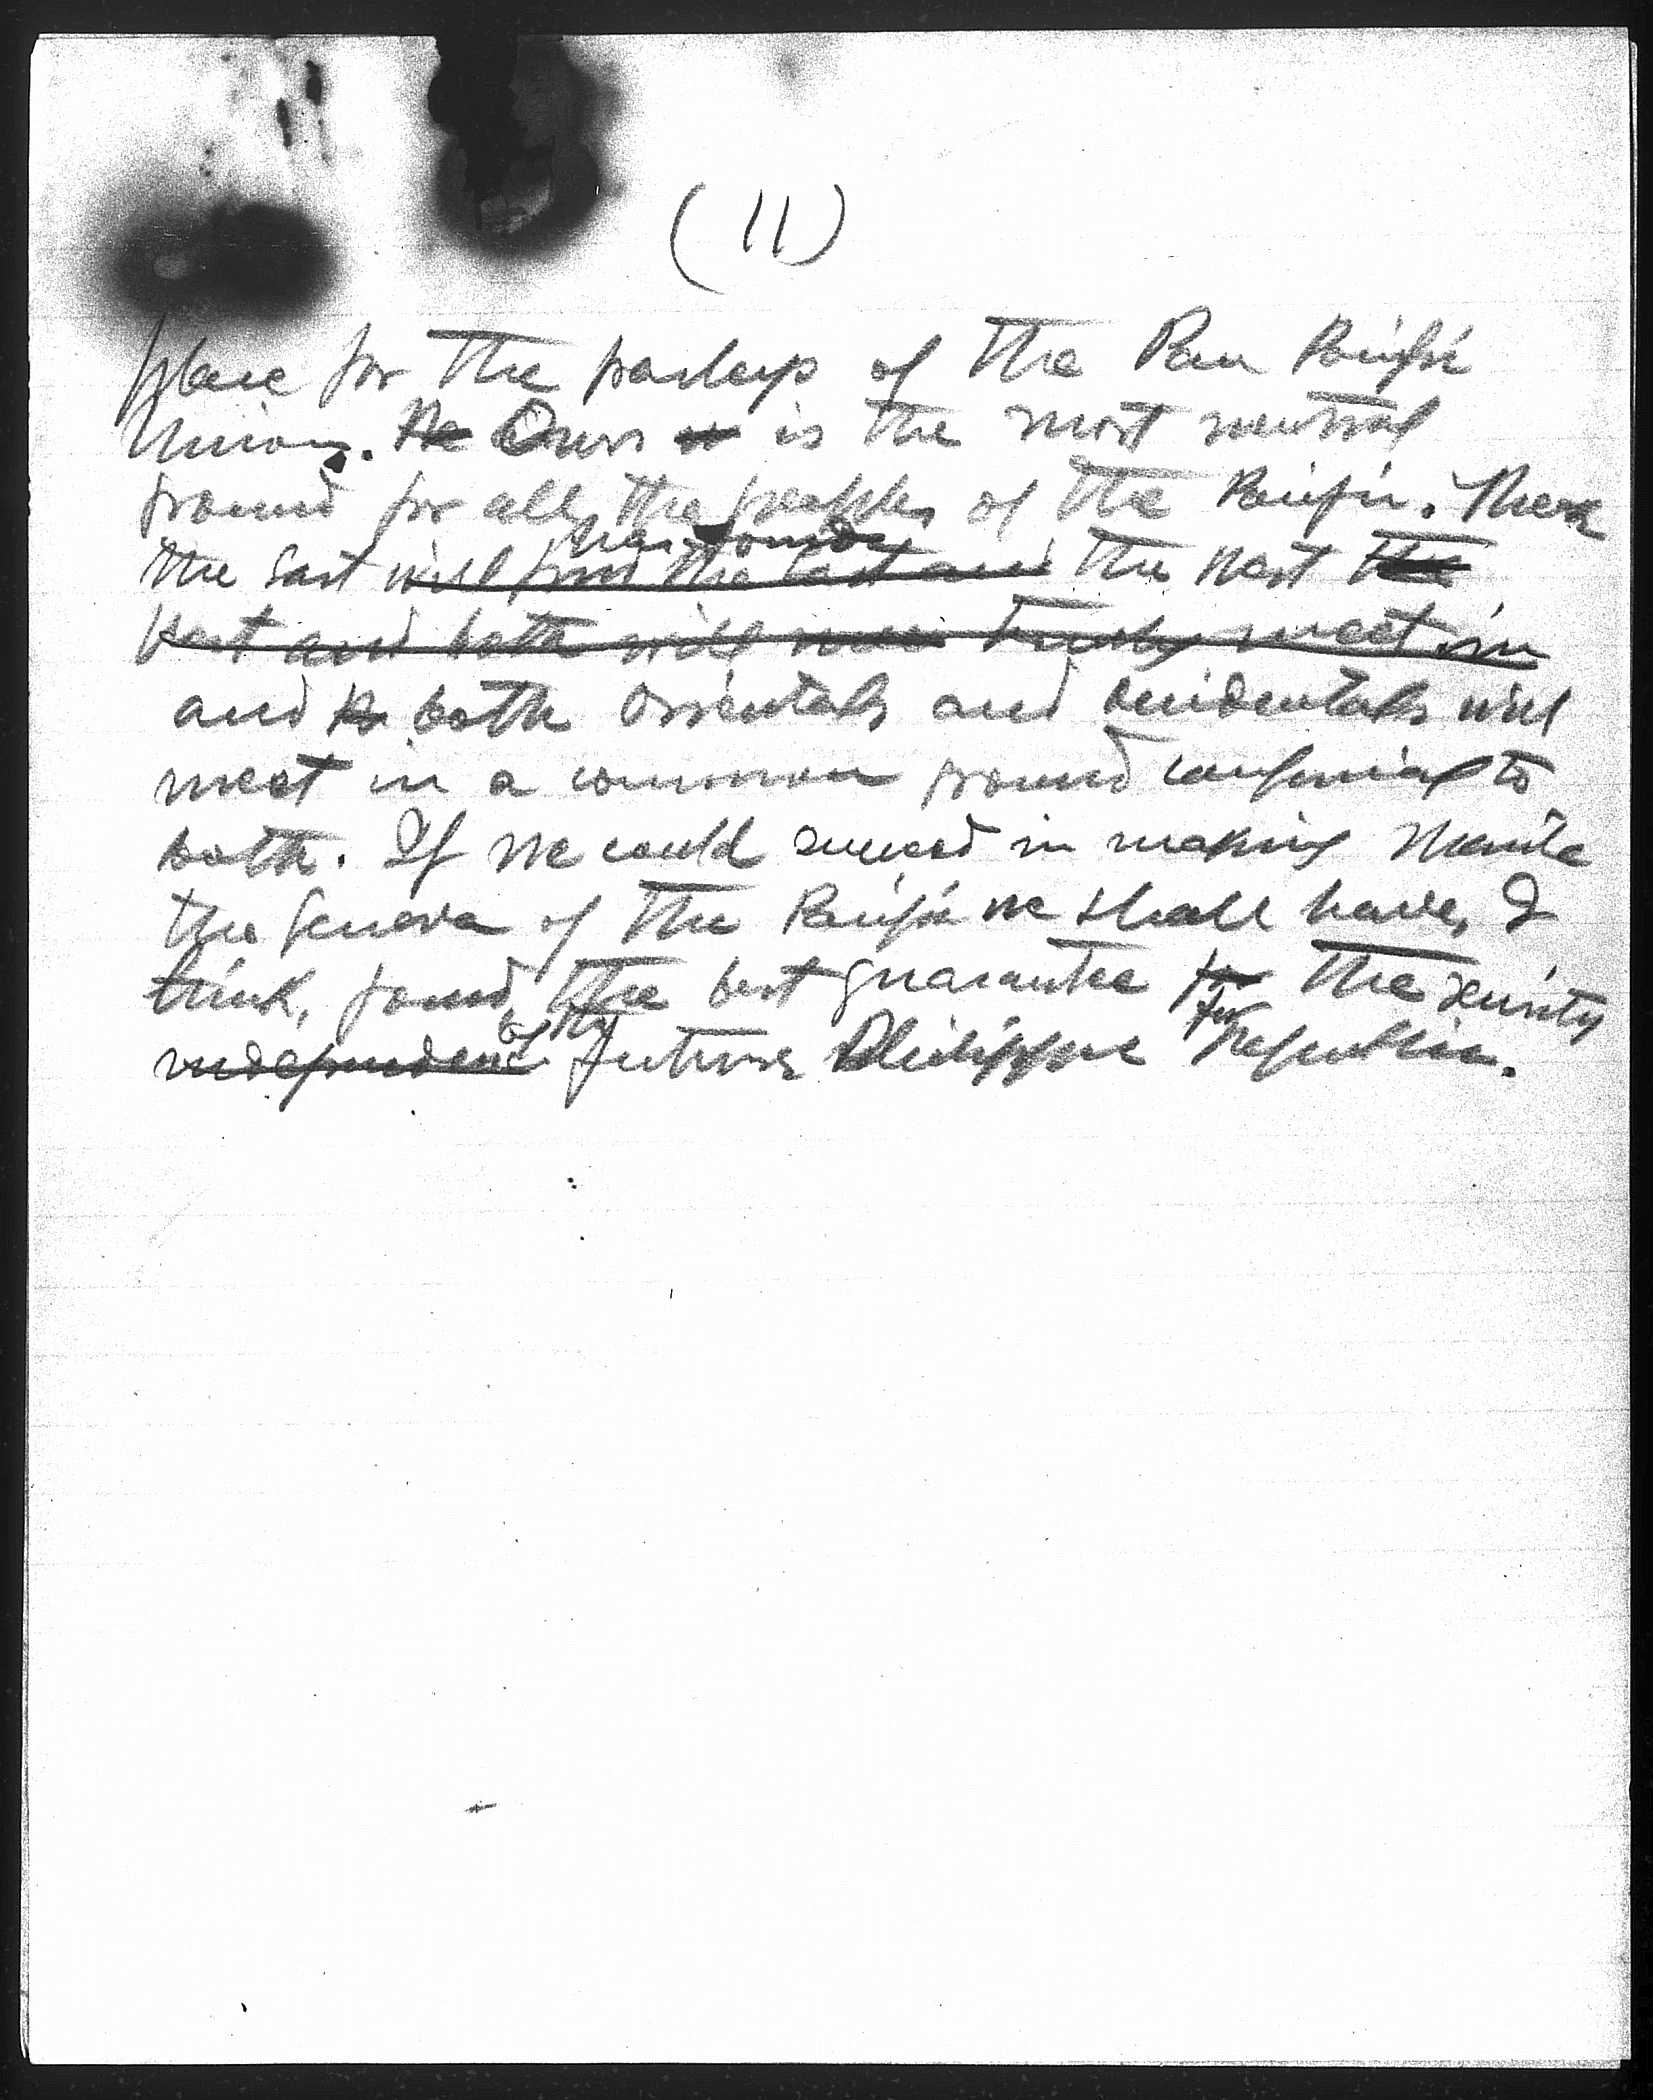 (11)
place for the parleys of the Pan Pacific
Union. He Ours is the most neutral
ground for all the peoples of the Pacific. There
has found
the East will find the East and the West the
West and both will truly meet in
and both orientals and occidentals will
meet in a common ground congenial to
both. If we could succeed in making Manila
the Geneva of the Pacific we shall have, I
think, found the best guarantee for the security
of the for
independence future Philippine Republic.